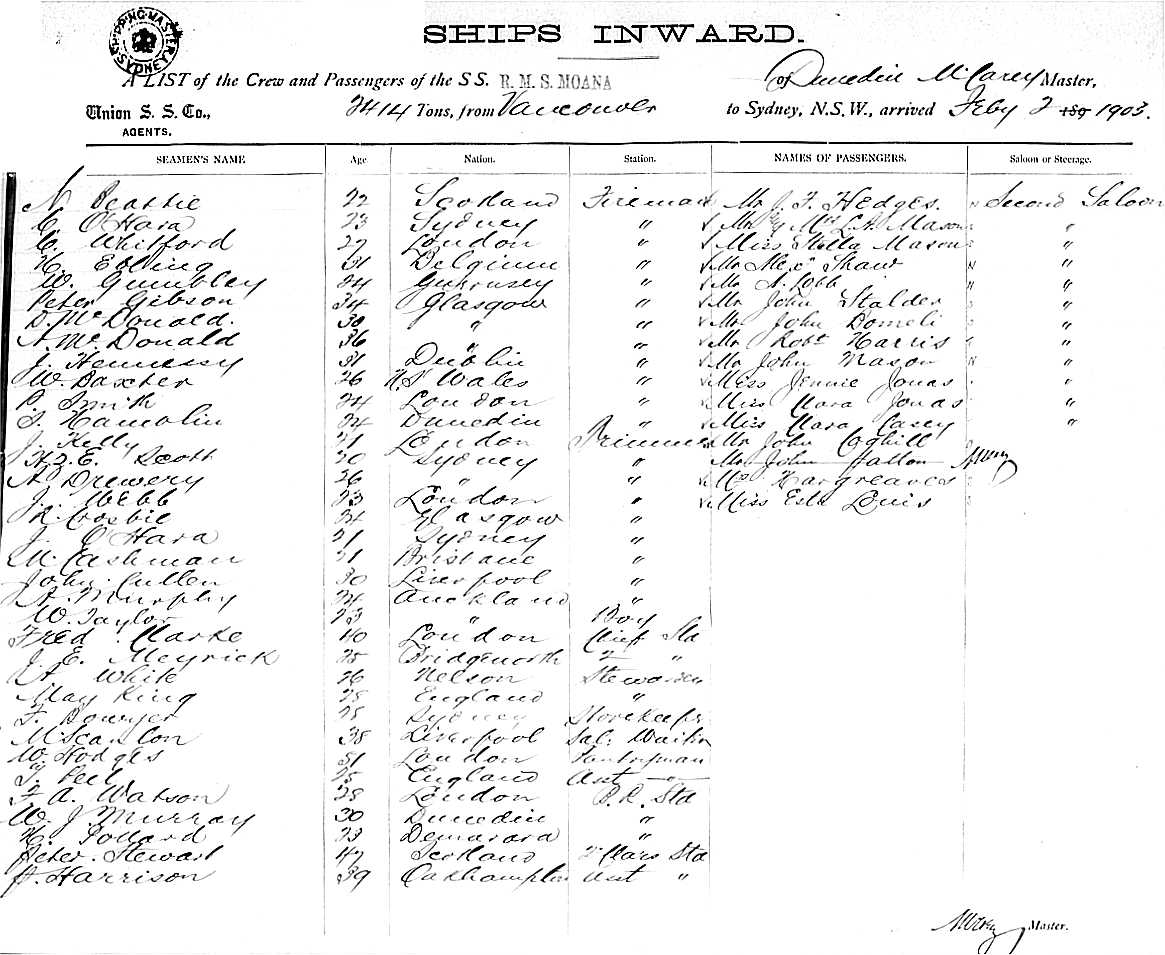 SHIPPING MASTER SYDNEY
SHIPS INWARD.
A LIST of the Crew and Passengers of the SS. R. M. S. MOANA of Dunedin McCarey Master,
Union S. S. Co., AGENTS. 2414 Tons, from Vancouver to Sydney, N.S.W., arrived Feby 2 189 1903.
SEAMEN'S NAME Age Nation. Station. NAMES OF PASSENGERS. Saloon or Steerage.
N Beattie 22 Scotland Fireman Mr J. F. Hedges. Second Saloon
C. O'Hara 23 Sydney " Mr & Mrs L. A. Mason "
C. Whitford 27 London " Miss Stella Mason "
H. Ebling 31 Belgium " Mr Alexr Shaw "
W. Gumbley 24 Guernsey " Mr A. Cobb "
Peter Gibson 34 Glasgow " Mr John Stalder "
D. McDonald. 30 " " Mr John Bomeli "
A. McDonald 36 " " Mr Robt Harris "
J. Hennessy 31 Dublin " Mr John Mason "
W. Baxter 26 N.S Wales " Miss Jennie Jonas "
P. Smith 24 London " Miss Clara Jonas "
T. Hamolin 24 Dunedin " Miss Clara Casey "
J. Kelly 21 London Trimmer Mr John Coghill
H. E. Scott 20 Sydney " Mr John Hallon
A. Drewery 26 " " Hargreaves
J. Webb 23 London " Miss Esta Louis
R. Crosbie 24 Glasgow "
J. O'Hara 21 Sydney "
M. Cashman 21 Brisbane "
John Cullen 30 Liverpool "
A. Murphy 24 Auckland "
W. Taylor 23 " Boy
Fred Clarke 40 London Chief Std
J. E. Meyrick 25 Bridgenorth 2 "
A. White 26 Nelson Stewardess
May King 28 England "
F. Bowyer 28 Sydney Storekeeper
M Scanlon 38 Liverpool Sal: Waiter
W. Hodges 51 London Pantryman
T. Peel 25 England Asst "
F. A. Watson 28 London B.R. Std
W. J. Murray 30 Dunedin "
H. Pollard 23 Demarara "
Peter Stewart 47 Scotland 2 Class Std
A. Harrison 39 Oakhampton Asst "
McCarey Master.